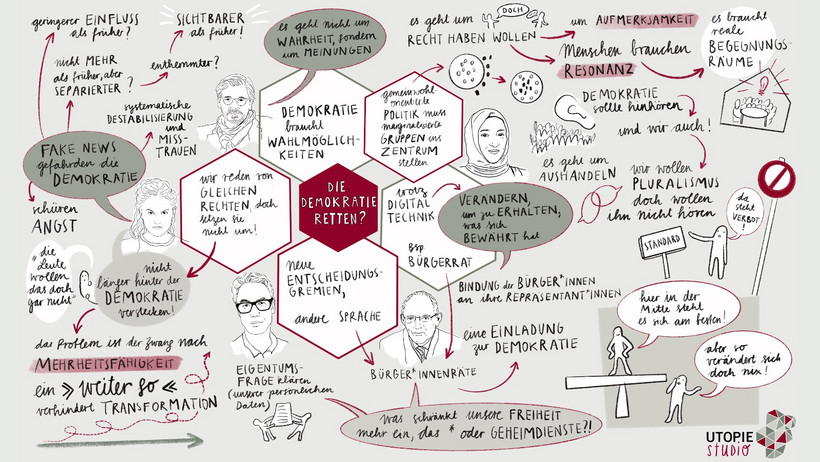 geringerer EINFLUSS
als früher?
SICHTBARER
als früher!
nicht MEHR
als früher, aber
SEPARIERTER ?
enthemmter?
systematische
DESTABILISIERUNG
und
MISS-
TRAUEN
FAKE NEWS
gefährden die
DEMOKRATIE
schüren
ANGST
"die
Leute
wollen
das doch
gar nicht"
nicht
länger hinter der
DEMOKRATIE
verstecken!
das Problem ist der Zwang nach
MEHRHEITSFÄHIGKEIT
ein » weiter so «
verhindert TRANSFORMATION
es geht nicht um
WAHRHEIT, sondern
um MEINUNGEN
DEMOKRATIE
braucht
WAHLMÖGLICH-
KEITEN
wir reden von
GLEICHEN
RECHTEN, doch
setzen sie
nicht um!
DIE
DEMOKRATIE
RETTEN?
gemeinwohl-
orientierte
POLITIK muss
marginalisierte
GRUPPEN ins
ZENTRUM
stellen
trotz
DIGITAL
TECHNIK
Bsp
BÜRGERRAT
neue
ENTSCHEIDUNGS-
GREMIEN,
andere SPRACHE
EIGENTUMS-
FRAGE klären
(unserer persönlichen
Daten)
BÜRGER*INNENRÄTE
was schränkt unsere FREIHEIT
mehr ein, das * oder GEHEIMDIENSTE?!
es geht um
RECHT HABEN WOLLEN
DOCH
um AUFMERKSAMKEIT
Menschen brauchen
RESONANZ
es braucht
reale
BEGEGNUNGS-
RÄUME!
DEMOKRATIE
sollte hinhören
und wir auch!
es geht um
AUSHANDELN
wir wollen
PLURALISMUS
doch wollen
ihn nicht hören
VERÄNDERN,
um zu ERHALTEN,
was sich
BEWÄHRT hat
BINDUNG der BÜRGER*INNEN
an ihre REPRÄSENTANT*INNEN
eine EINLADUNG
zur DEMOKRATIE
STANDARD
da
steht
VERBOT!
hier in der
Mitte steht
es sich am besten!
aber so
verändert sich
doch nix!
UTOPIE
STUDIO